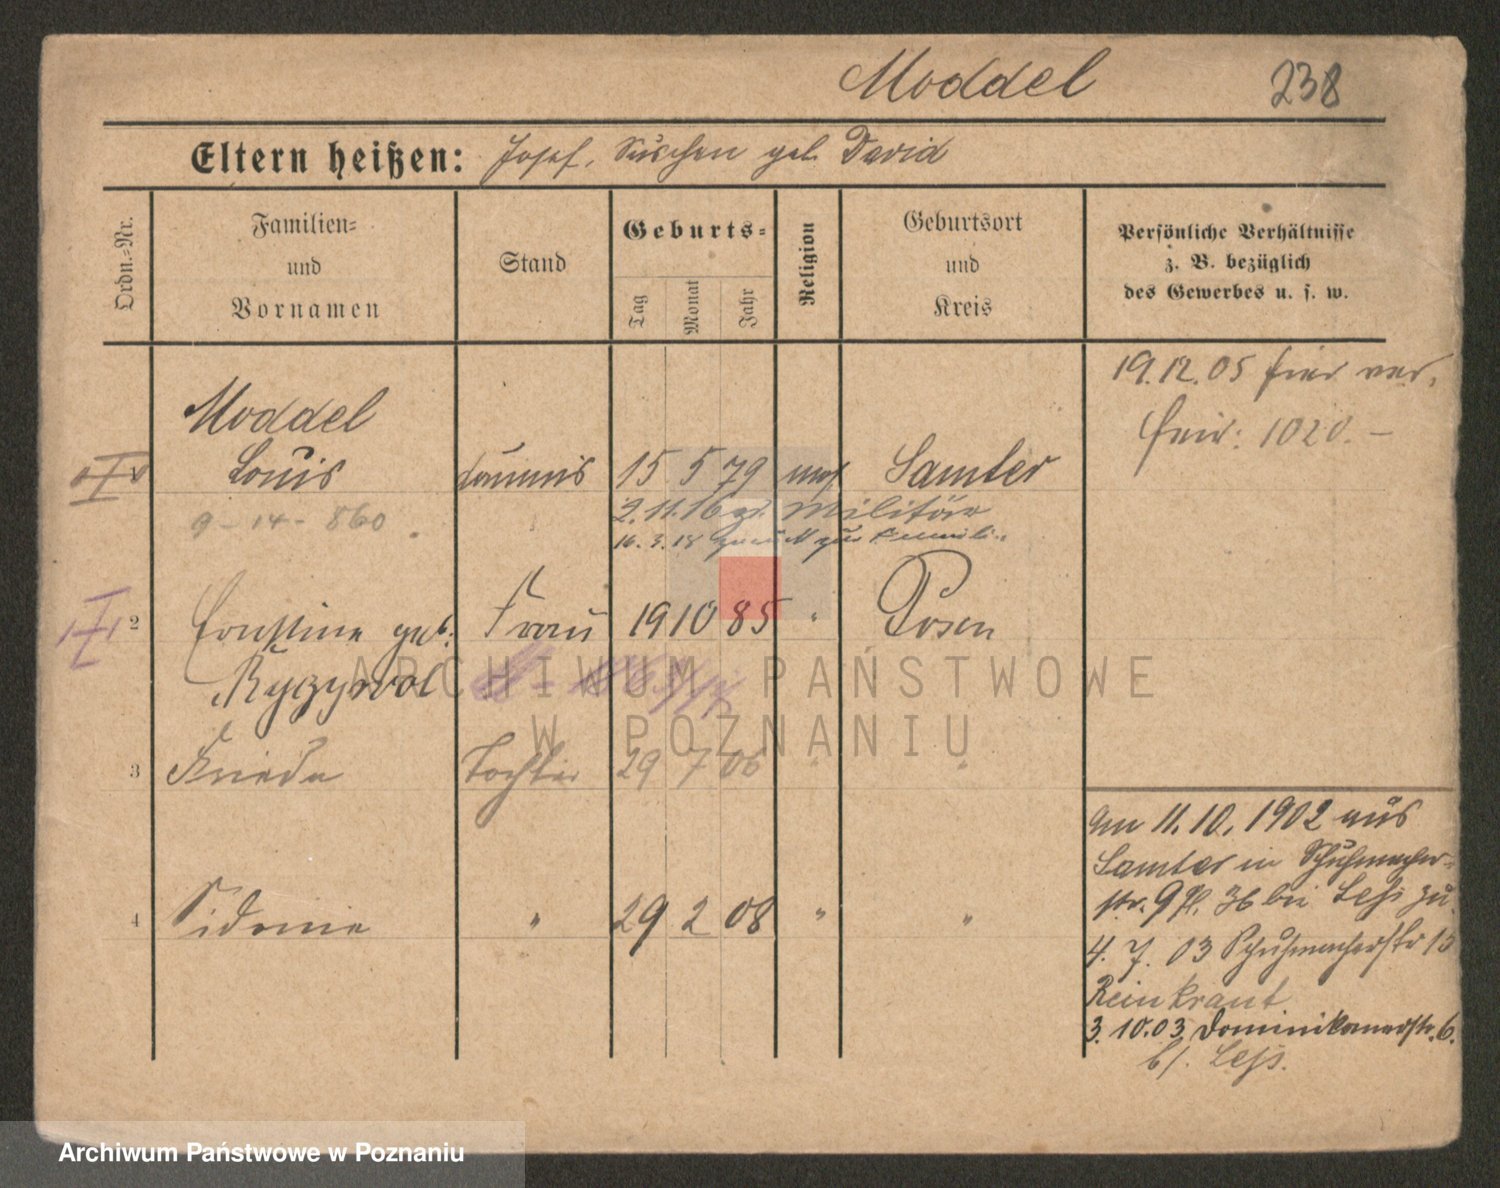 Moddel 238
Eltern heißen: Josef, Suschen geb. David
Ordn.-Nr.
Familien-
und
Vornamen
Stand
Geburts-
Tag
Monat
Jahr
Religion
Geburtsort
und
Kreis
Persönliche Verhältnisse
z. B. bezüglich
des Gewerbes u. s. w.
19.12.05 hier ver.
heir: 1020. –
Moddel
Louis 15 5 79 mos Samter
9-14-860.
2.11.16 Militär
16.3.18 zurück zur
2 Ernstine geb. Frau 19 10 85 " Posen
Ryczywol
3 Frieda Tochter 29 7 06 " "
4 Sidonie " 29 2 08 " "
am 11.10.1902 aus
Samter in Schuhmacher-
str. 9 bei zu.
4.7.03 Schuhmacherstr 15
Reinkraut
3.10.03 Dominikanerstr. 6.
b/.
ARCHIWUM PAŃSTWOWE
W POZNANIU
Archiwum Państwowe w Poznaniu